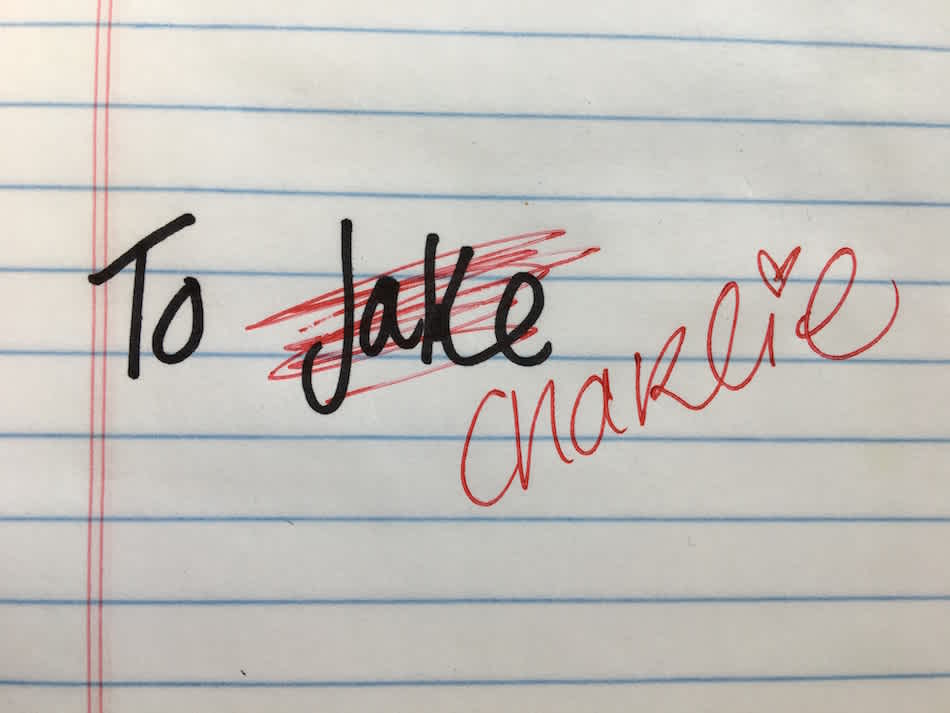 To Jake
Charlie